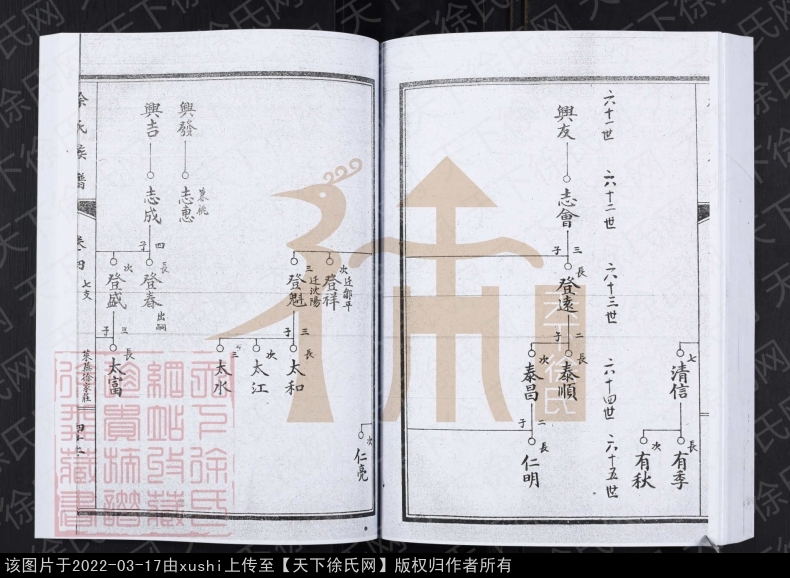 六十一世
六十二世
六十三世
六十四世
六十五世
七
清信
長
有季
次
有秋
興友
志會
三
子
長
登遠
二
子
長
泰順
次
泰昌
二
子
長
仁明
次
仁亮
次
遷鄒平
登祥
三
遷沈陽
登魁
三
子
長
太和
次
太江
三
太水
興發
志惠
興吉
志成
四
子
長
登春
出嗣
次
登盛
三
子
長
太富
徐氏族譜
卷四
七支
萊蕪徐家莊
天下徐氏
该图片于2022-03-17由xushi上传至【天下徐氏网】版权归作者所有